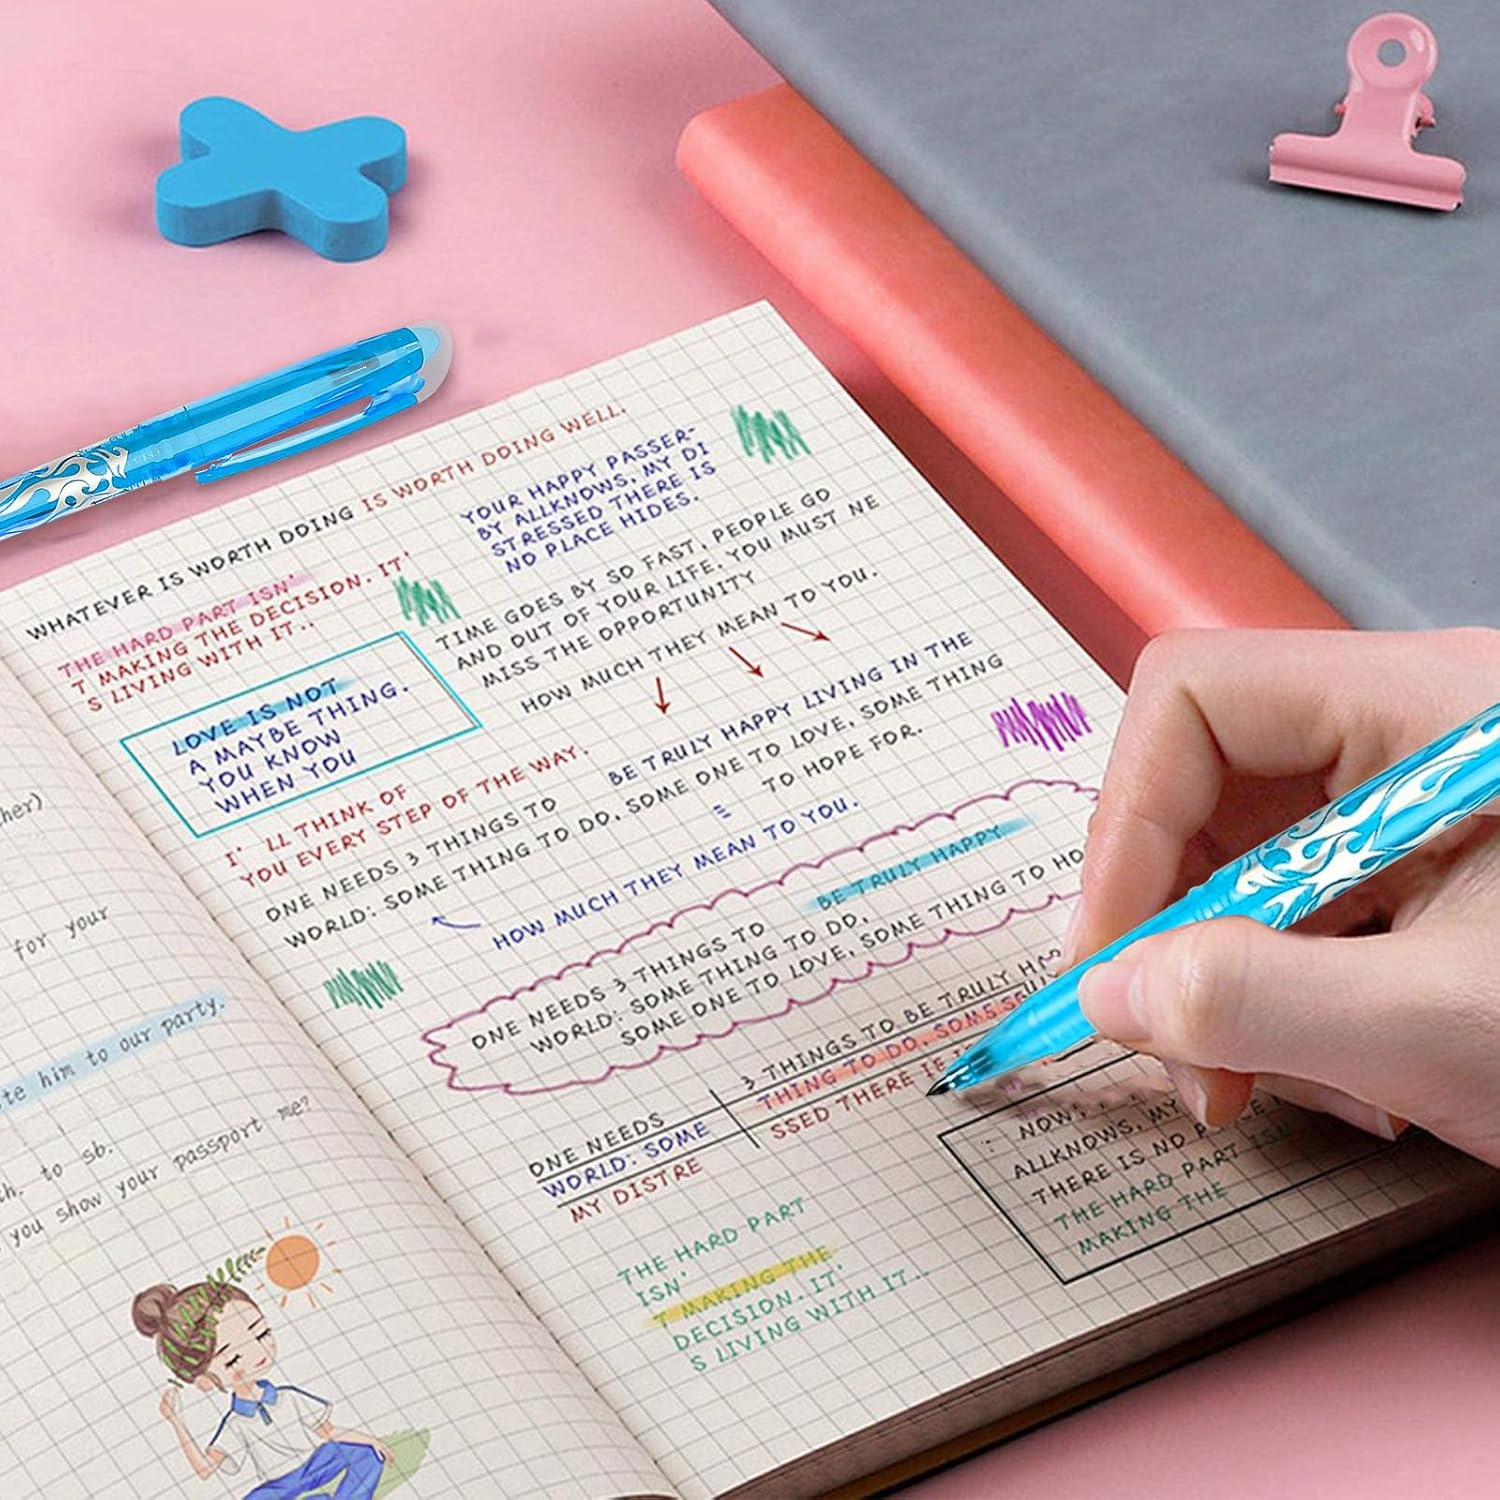 her)
for your
te him to our party.
th. to sb.
you show your passport me?
WHATEVER IS WORTH DOING IS WORTH DOING WELL.
THE HARD PART ISN'
T MAKING THE DECISION. IT'
S LIVING WITH IT..
YOUR HAPPY PASSER-
BY ALLKNOWS, MY DI
STRESSED THERE IS
NO PLACE HIDES.
TIME GOES BY SO FAST, PEOPLE GO
AND OUT OF YOUR LIFE. YOU MUST NE
MISS THE OPPORTUNITY
HOW MUCH THEY MEAN TO YOU.
LOVE IS NOT
A MAYBE THING.
YOU KNOW
WHEN YOU
I' LL THINK OF
YOU EVERY STEP OF THE WAY.
BE TRULY HAPPY LIVING IN THE
ONE NEEDS 3 THINGS TO
WORLD: SOME THING TO DO, SOME ONE TO LOVE, SOME THING
TO HOPE FOR.
HOW MUCH THEY MEAN TO YOU.
BE TRULY HAPPY
ONE NEEDS 3 THINGS TO
WORLD: SOME THING TO DO,
SOME ONE TO LOVE, SOME THING TO HO
ONE NEEDS
WORLD: SOME
MY DISTRE
3 THINGS TO BE TRULY HA
THING TO DO, SOME
SSED THERE
NOW,
ALLKNOWS, MY
THERE IS NO
THE HARD PART ISN
MAKING THE
THE HARD PART
ISN'
T MAKING THE
DECISION. IT'
S LIVING WITH IT..